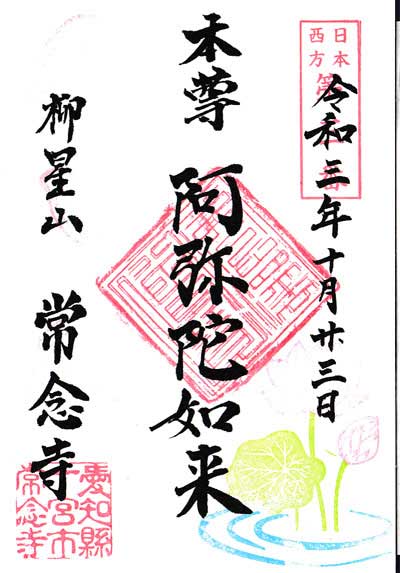 日本
西方
令和三年十月廿三日
本尊 阿弥陀如来
柳星山 常念寺
愛知縣
一宮市
常念寺